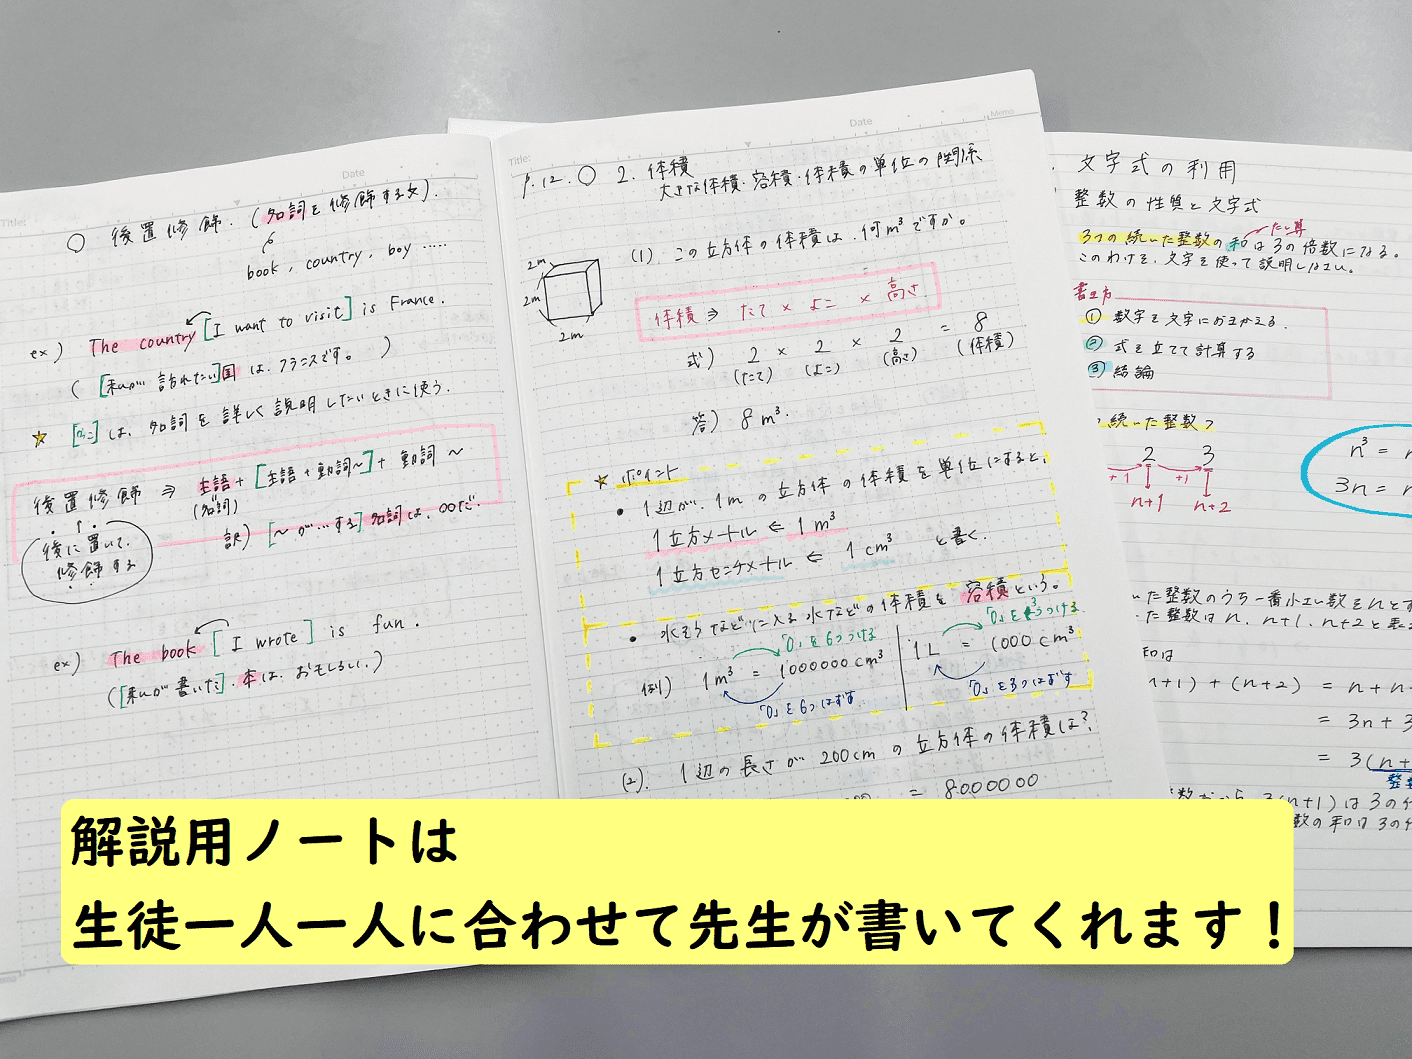 Title:
Date
○ 後置修飾.(名詞を修飾する文).
book, country, boy .....
ex) The country [I want to visit] is France.
([私が 訪れたい]国 は、フランスです。)
☆ [かっこ] は、名詞を詳しく説明したいときに使う.
後置修飾 ⇒ 主語+[主語+動詞~]+ 動詞 ~
(名詞)
訳) [~が…する]名詞は、〇〇だ.
後に置いて、
修飾する
ex) The book [I wrote] is fun.
([私が書いた].本は、おもしろい.)
Title:
Date
Memo
P.12.○ 2. 体積
大きな体積・容積・体積の単位の関係
(1). この立方体の体積は、何m³ですか。
2m
2m
2m
体積 ⇒ たて × よこ × 高さ
式) 2 × 2 × 2 = 8
(たて) (よこ) (高さ) (体積)
答) 8m³.
☆ ポイント
• 1辺が、1mの立方体の体積を単位にすると、
1立方メートル ← 1m³
1立方センチメートル ← 1cm³ と書く.
• 水そうなどに入る水などの体積を 容積という。
「0」を6つつける
例) 1m³ = 1000000cm³
「0」を6つはずす
「0」を3つつける
1L = 1000cm³
「0」を3つはずす
(2). 1辺の長さが 200cm の立方体の体積は?
= 8000000
文字式の利用
整数の性質と文字式
たし算
3つの続いた整数の和は3の倍数になる。
このわけを、文字を使って説明しなさい。
書き方
① 数字を文字におきかえる.
② 式を立てて計算する
③ 結論
続いた整数>
2 3
+1 +1
n+1 n+2
n³ =
3n =
た整数のうち一番小さい数をnとす
た整数はn, n+1, n+2と表
和は
n+1) + (n+2) = n+n
= 3n+3
= 3(n+
整数
3(n+1)は3の
数の和は3の
解説用ノートは
生徒一人一人に合わせて先生が書いてくれます！